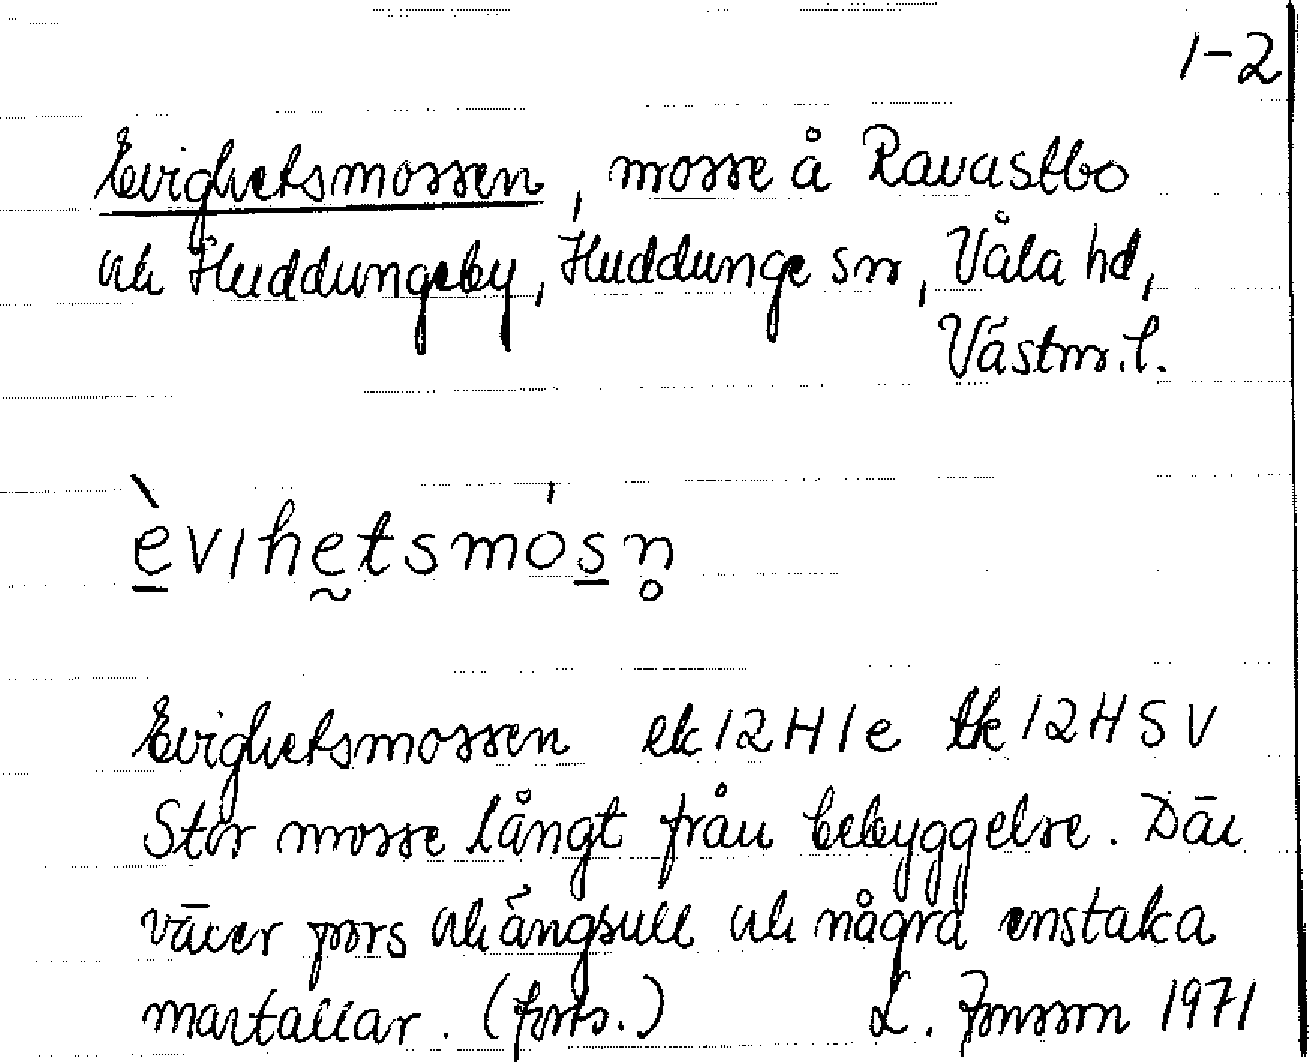 1-2
Evighetsmossen, mosse å Ravastbo
och Huddungeby, Huddunge sn, Våla hd,
Västm. l.
èvıhḛtsmósn̥
Evighetsmossen ek 12H1e tk 12HSV
Stor mosse långt från bebyggelse. Där
växer pors och ängsull och några enstaka
martallar. (forts.) L. Jonsson 1971